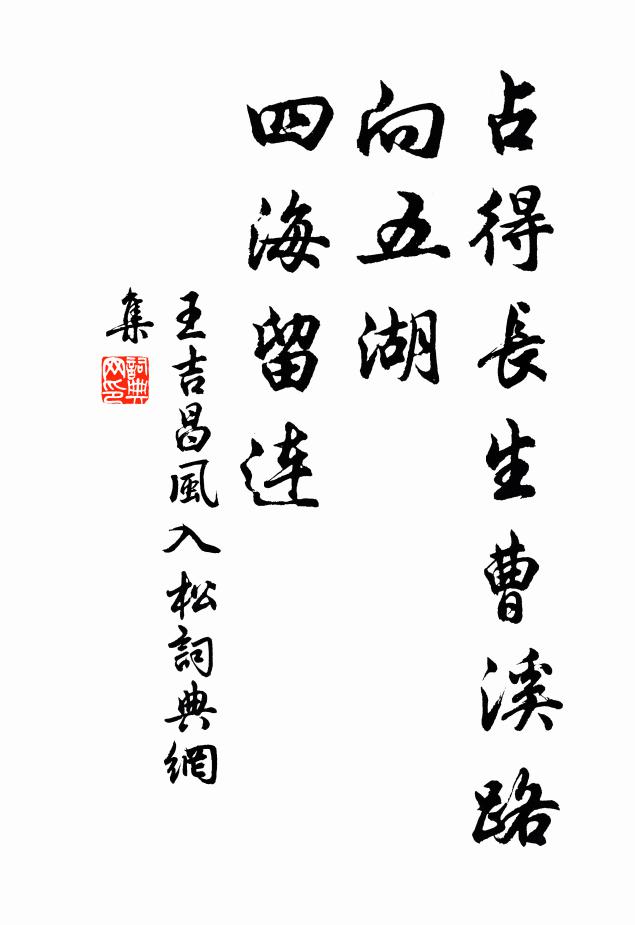 占得長生曹溪路
向五湖
四海留連
王吉昌風入松詞典網
集
詞典
网印